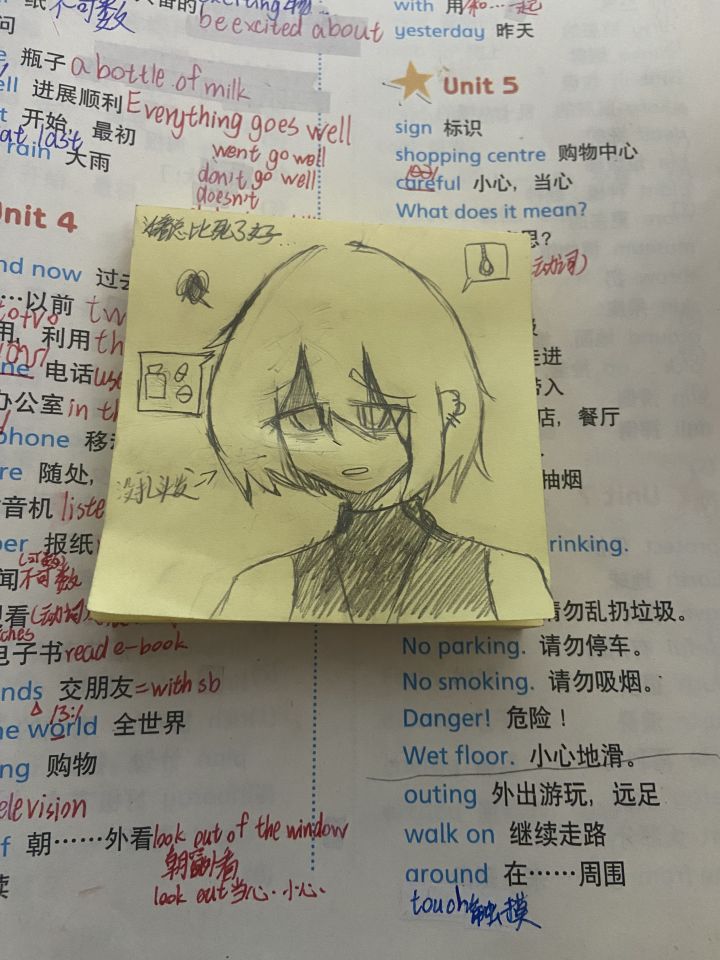 不可数
be excited about
瓶子 a bottle of milk
进展顺利 Everything goes well
开始，最初
at last
went go well
rain 大雨
don't go well
doesn't
Unit 4
活着总比死了好...
没扎头发→
now 过去
……以前
用，利用
电话
办公室 in
phone 移
随处，
音机
报纸
(可数)
不可数
看(动词
电子书 read e-book
交朋友=with sb
world 全世界
购物
television
朝……外看 look out of the window
朝窗外看
look out 当心.小心.
with 用 和…一起
yesterday 昨天
Unit 5
sign 标识
shopping centre 购物中心
careful 小心，当心
What does it mean?
思?
动词)
走进
带入
店，餐厅
抽烟
rinking.
请勿乱扔垃圾。
No parking. 请勿停车。
No smoking. 请勿吸烟。
Danger! 危险！
Wet floor. 小心地滑。
outing 外出游玩，远足
walk on 继续走路
around 在……周围
touch 触摸